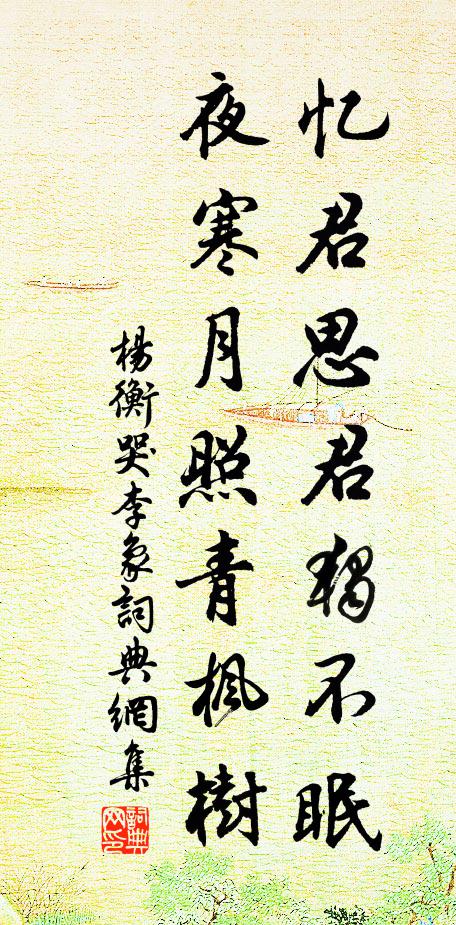 忆君思君独不眠
夜寒月照青枫樹
楊衡哭李象詞典網集
詞典
网印